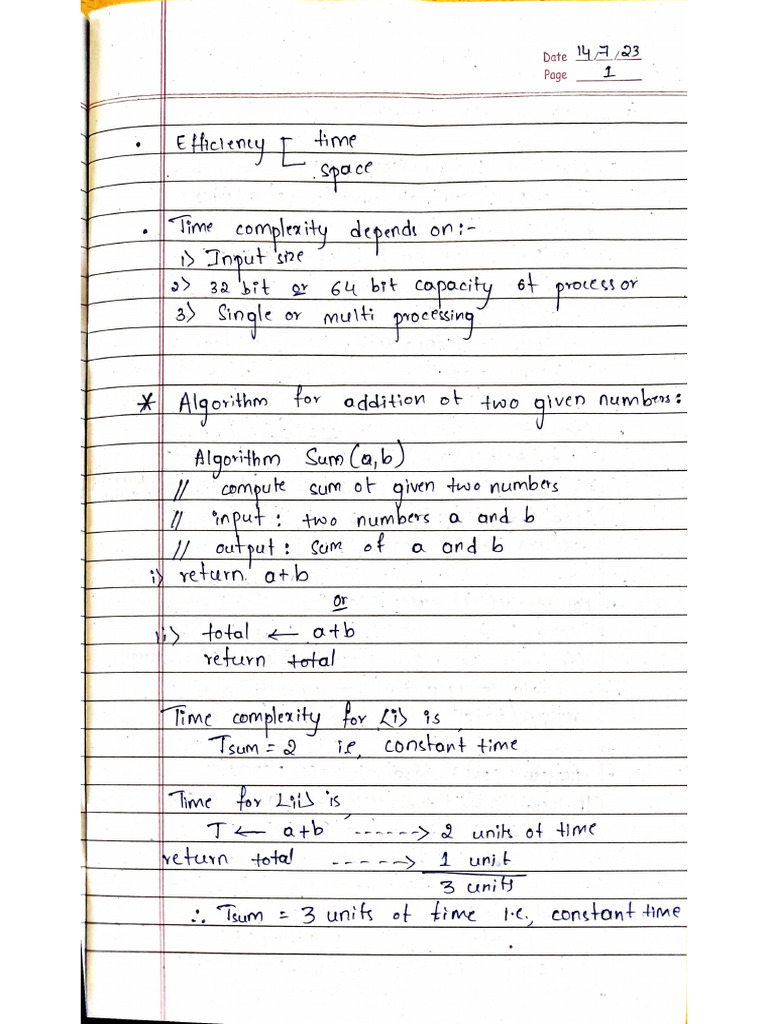 Date 14/7/23
Page 1
• Efficiency [ time
space
• Time complexity depends on:-
1> Input size
2> 32 bit or 64 bit capacity of processor
3> Single or multi processing
* Algorithm for addition of two given numbers:
Algorithm Sum(a,b)
// compute sum of given two numbers
// input: two numbers a and b
// output: sum of a and b
i> return a+b
or
ii> total ← a+b
return total
Time complexity for <i> is,
Tsum = 2 ie, constant time
Time for <ii> is
T ← a+b ------> 2 units of time
return total -----> 1 unit
3 units
∴ Tsum = 3 units of time i.e., constant time